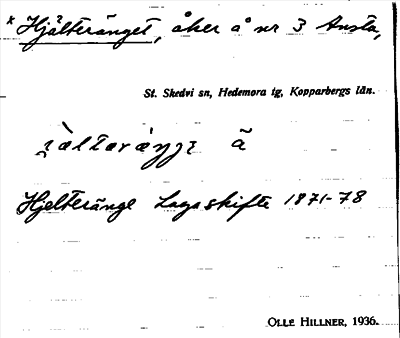 * Hjälteränget, åker å nr 3 Ansta,
St. Skedvi sn, Hedemora tg, Kopparbergs län.
Hjelteränge Laga skifte 1871-78
OLLE HILLNER, 1936.